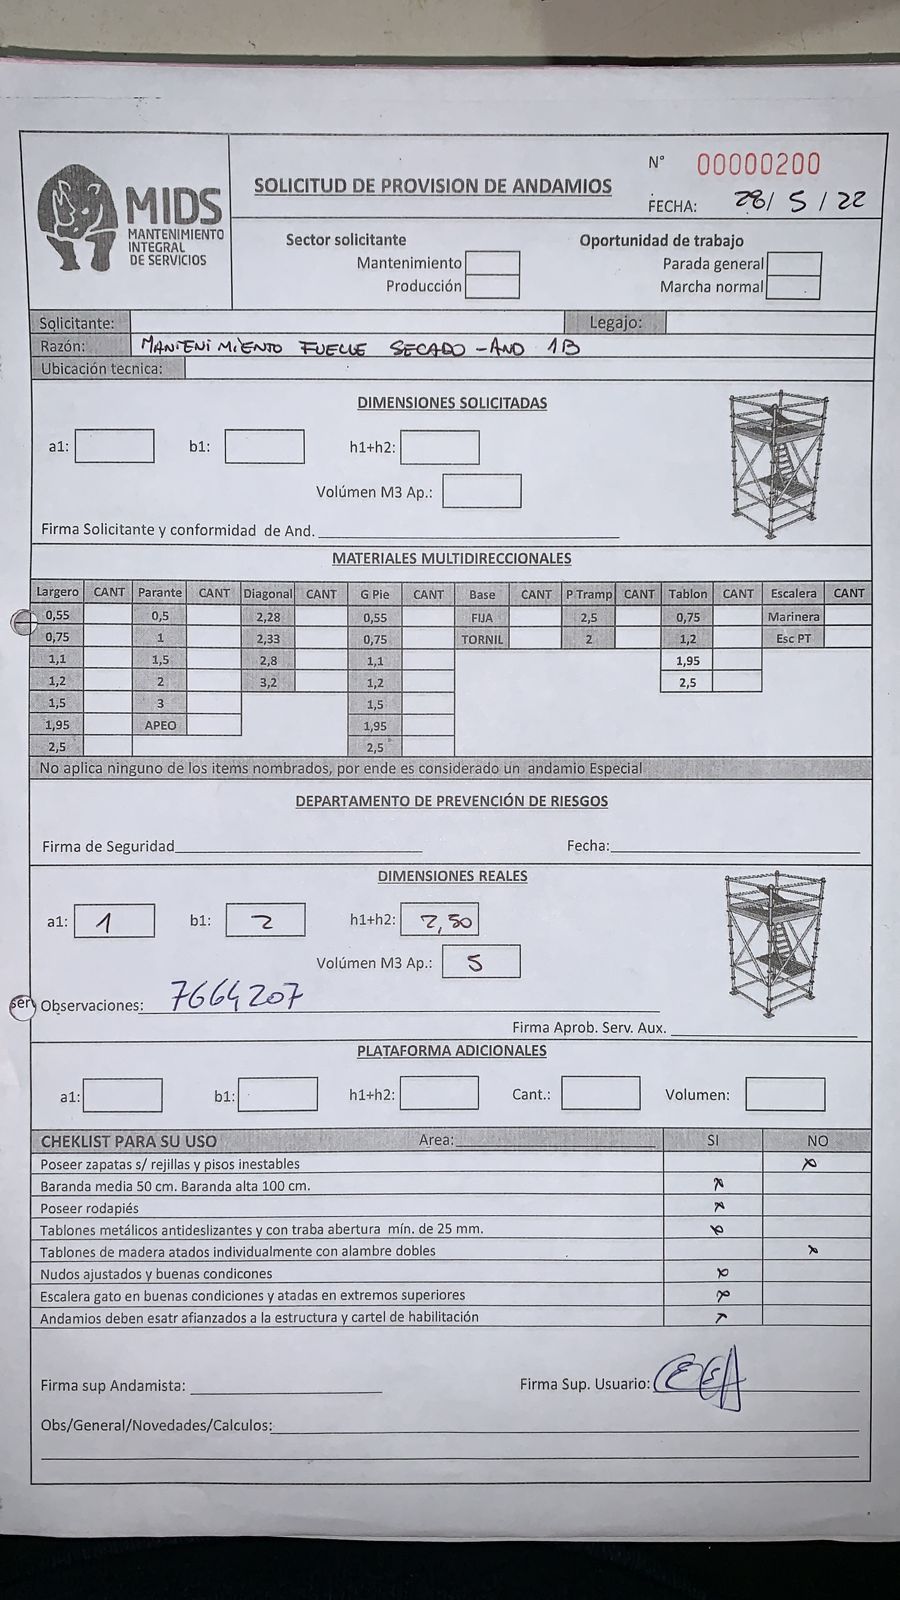 MIDS
MANTENIMIENTO
INTEGRAL
DE SERVICIOS
SOLICITUD DE PROVISION DE ANDAMIOS
N° 00000200
FECHA: 28/ 5 / 22
Sector solicitante
Mantenimiento
Producción
Oportunidad de trabajo
Parada general
Marcha normal
Solicitante: Legajo:
Razón: MANTENIMIENTO FUELLE SECADO - AND 1B
Ubicación tecnica:
DIMENSIONES SOLICITADAS
a1: b1: h1+h2:
Volúmen M3 Ap.:
Firma Solicitante y conformidad de And.
MATERIALES MULTIDIRECCIONALES
Largero CANT Parante CANT Diagonal CANT G Pie CANT Base CANT P Tramp CANT Tablon CANT Escalera CANT
0,55 0,5 2,28 0,55 FIJA 2,5 0,75 Marinera
0,75 1 2,33 0,75 TORNIL 2 1,2 Esc PT
1,1 1,5 2,8 1,1 1,95
1,2 2 3,2 1,2 2,5
1,5 3 1,5
1,95 APEO 1,95
2,5 2,5
No aplica ninguno de los items nombrados, por ende es considerado un andamio Especial
DEPARTAMENTO DE PREVENCIÓN DE RIESGOS
Firma de Seguridad Fecha:
DIMENSIONES REALES
a1: 1 b1: 2 h1+h2: 2,50
Volúmen M3 Ap.: 5
ser
Observaciones: 7664207
Firma Aprob. Serv. Aux.
PLATAFORMA ADICIONALES
a1: b1: h1+h2: Cant.: Volumen:
CHEKLIST PARA SU USO Area: SI NO
Poseer zapatas s/ rejillas y pisos inestables x
Baranda media 50 cm. Baranda alta 100 cm. x
Poseer rodapiés x
Tablones metálicos antideslizantes y con traba abertura mín. de 25 mm. x
Tablones de madera atados individualmente con alambre dobles x
Nudos ajustados y buenas condicones x
Escalera gato en buenas condiciones y atadas en extremos superiores x
Andamios deben esatr afianzados a la estructura y cartel de habilitación x
Firma sup Andamista: Firma Sup. Usuario:
Obs/General/Novedades/Calculos: